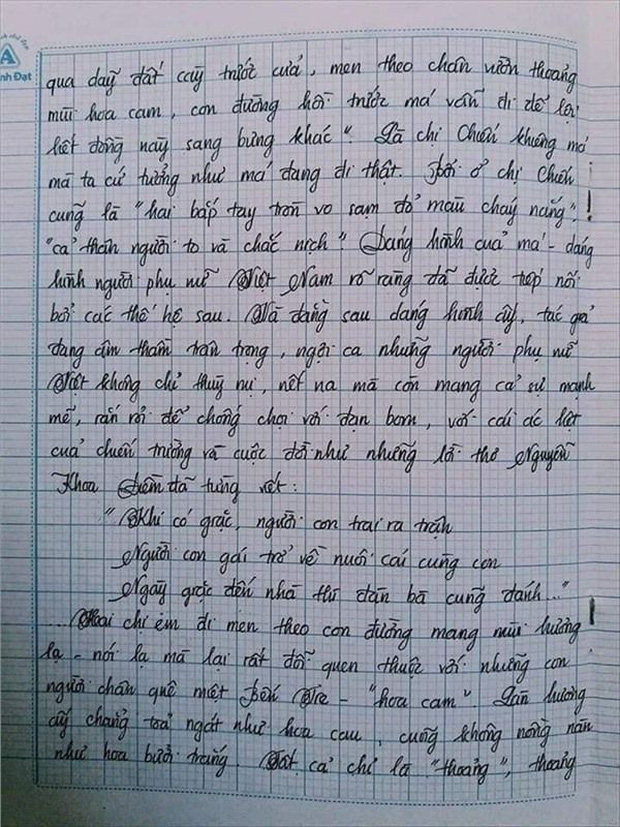 A
nh Đạt
qua dãy đất cày trước cửa, men theo chân vườn thoảng
mùi hoa cam, con đường hồi trước má vẫn đi để lội
hết đồng này sang bưng khác". Là chị Chiến khiêng má
mà ta cứ tưởng như má đang đi thật. Bởi ở chị Chiến
cũng là "hai bắp tay tròn vo sạm đỏ màu cháy nắng",
"cả thân người to và chắc nịch". Dáng hình của má - dáng
hình người phụ nữ Việt Nam rõ ràng đã được tiếp nối
bởi các thế hệ sau. Và đằng sau dáng hình ấy, tác giả
đang âm thầm trân trọng, ngợi ca những người phụ nữ
Việt không chỉ thuỳ mị, nết na mà còn mang cả sự mạnh
mẽ, rắn rỏi để chống chọi với đạn bom, với cái ác liệt
của chiến trường và cuộc đời như những lời thơ Nguyễn
Khoa Điềm đã từng viết:
"Khi có giặc, người con trai ra trận
Người con gái trở về nuôi cái cùng con
Ngày giặc đến nhà thì đàn bà cũng đánh..."
....Hai chị em đi men theo con đường mang mùi hương
lạ - nói lạ mà lại rất đỗi quen thuộc với những con
người chân quê miệt Bến Tre - "hoa cam". Làn hương
ấy chẳng toả ngát như hoa cau, cũng không nồng nàn
như hoa bưởi trắng. Tất cả chỉ là "thoảng", thoảng